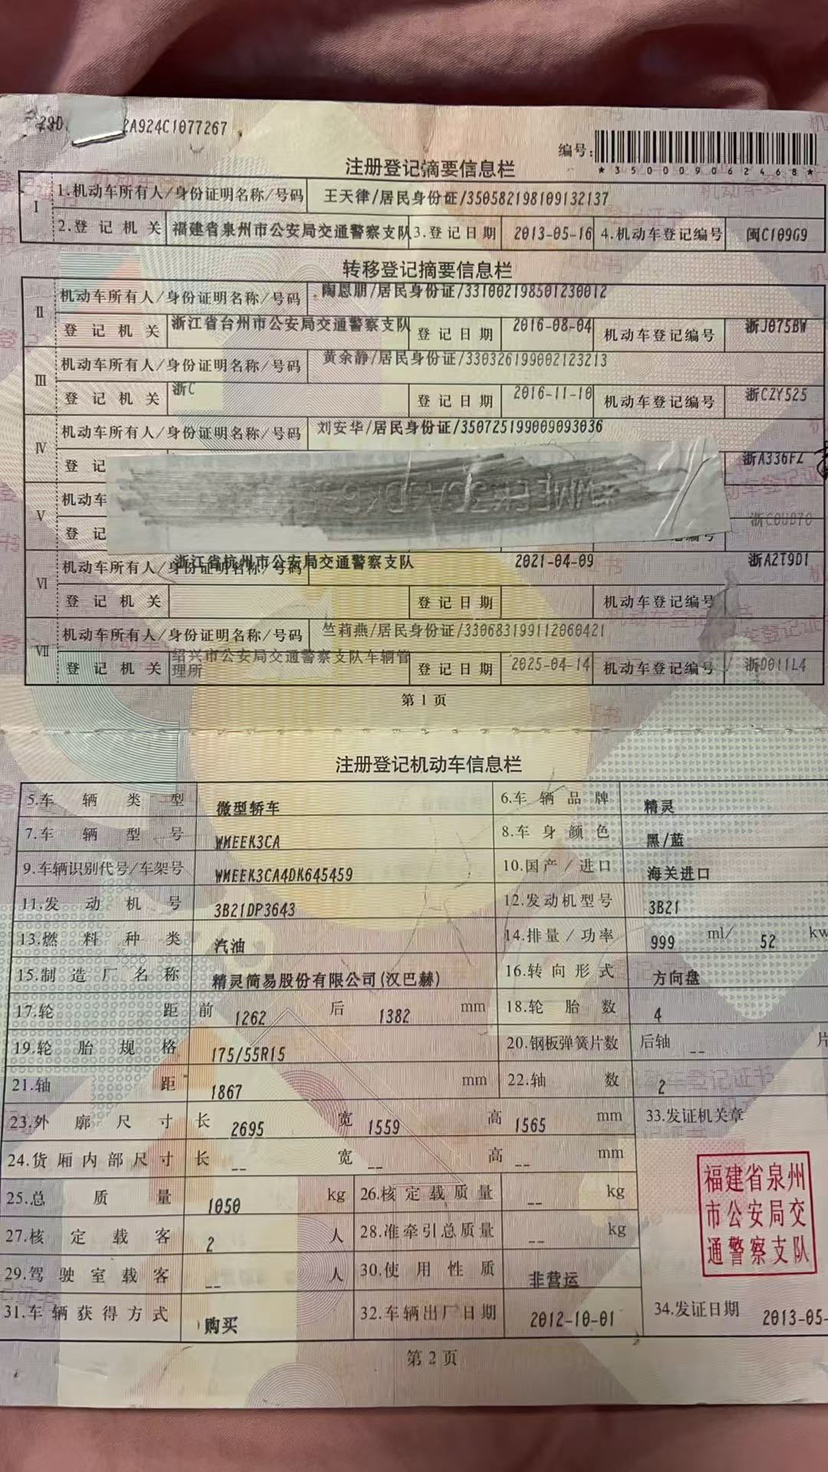 2A924C1077267
编号:
*350009062468*
注册登记摘要信息栏
I 1.机动车所有人/身份证明名称/号码 王天律/居民身份证/350582198109132137
2.登记机关 福建省泉州市公安局交通警察支队 3.登记日期 2013-05-16 4.机动车登记编号 闽C109G9
转移登记摘要信息栏
II 机动车所有人/身份证明名称/号码 陶恩朋/居民身份证/331002198501230012
登记机关 浙江省台州市公安局交通警察支队 登记日期 2016-08-04 机动车登记编号 浙J075BW
III 机动车所有人/身份证明名称/号码 黄余静/居民身份证/330326199002123213
登记机关 浙C 登记日期 2016-11-10 机动车登记编号 浙CZY525
IV 机动车所有人/身份证明名称/号码 刘安华/居民身份证/350725199009093036
登记 浙A336FZ
V 机动车
登记
VI 机动车所有人/身份证明名称/号码 浙江省杭州市公安局交通警察支队 2021-04-09 浙A2T9D1
登记机关 登记日期 机动车登记编号
VII 机动车所有人/身份证明名称/号码 竺莉燕/居民身份证/330683199112060421
登记机关 绍兴市公安局交通警察支队车辆管理所 登记日期 2025-04-14 机动车登记编号 浙D011L4
第1页
注册登记机动车信息栏
5.车辆类型 微型轿车 6.车辆品牌 精灵
7.车辆型号 WMEEK3CA 8.车身颜色 黑/蓝
9.车辆识别代号/车架号 WMEEK3CA4DK645459 10.国产/进口 海关进口
11.发动机号 3B21DP3643 12.发动机型号 3B21
13.燃料种类 汽油 14.排量/功率 999 ml/ 52 kw
15.制造厂名称 精灵简易股份有限公司(汉巴赫) 16.转向形式 方向盘
17.轮距 前 1262 后 1382 mm 18.轮胎数 4
19.轮胎规格 175/55R15 20.钢板弹簧片数 后轴 -- 片
21.轴距 1867 mm 22.轴数 2
23.外廓尺寸 长 2695 宽 1559 高 1565 mm 33.发证机关章
24.货厢内部尺寸 长 -- 宽 -- 高 -- mm
25.总质量 1050 kg 26.核定载质量 -- kg
27.核定载客 2 人 28.准牵引总质量 -- kg
福建省泉州
市公安局交
通警察支队
29.驾驶室载客 -- 人 30.使用性质 非营运
31.车辆获得方式 购买 32.车辆出厂日期 2012-10-01 34.发证日期 2013-05-
第2页